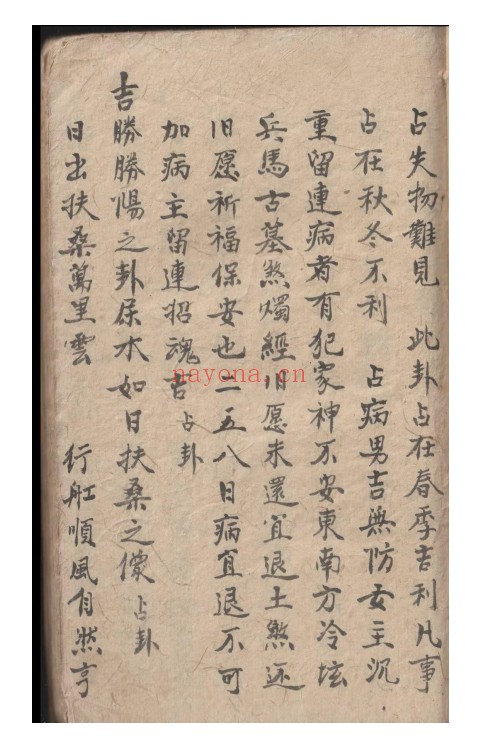 占失物難見　此卦占在春季吉利凡事
占在秋冬不利　占病男吉無防女主沉
重留連病者有犯家神不安東南方冷坛
兵馬古墓煞燭經旧愿未還宜退土煞还
旧愿祈福保安也二五八日病宜退不可
加病主留連招魂吉占卦
吉勝勝陽之卦屎木如日扶桑之儻占卦
日出扶桑萬里雲　行舡順風自然亨
nayona.cn